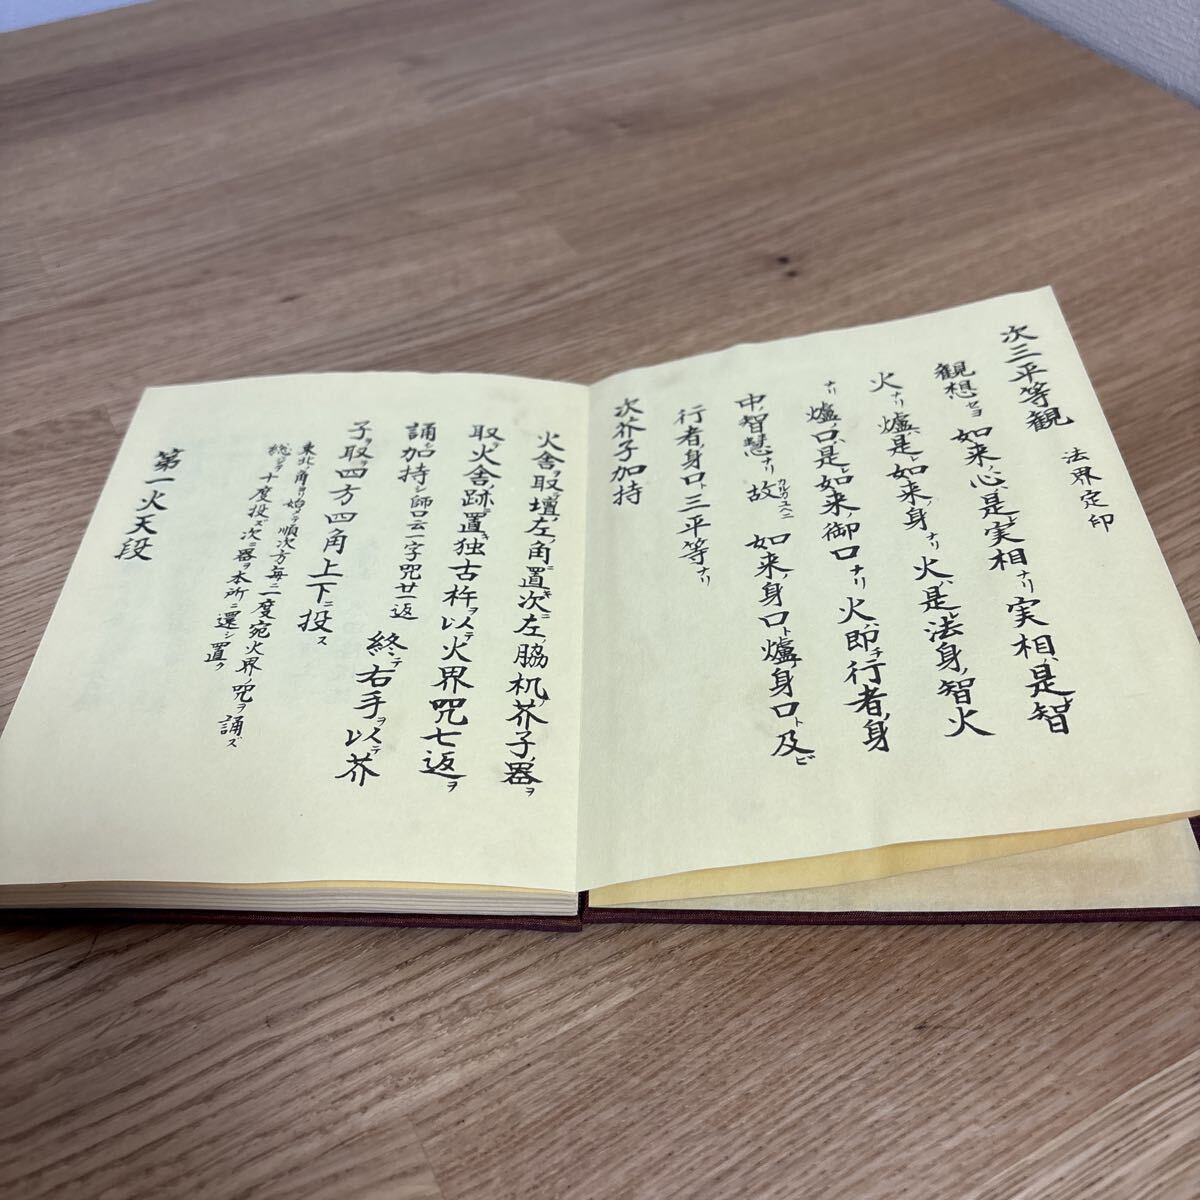 次三平等観 法界定印
観想セヨ如来ノ心ハ是レ実相ナリ実相ハ是レ智
火ナリ爐ハ是レ如来ノ身ナリ火ハ是レ法身ノ智火
ナリ爐ノ口ハ是レ如来ノ御口ナリ火ハ即チ行者ノ身
中ノ智慧ナリ故ニ如来ノ身口ト爐ノ身口ト及ビ
行者ノ身口ト三平等ナリ
次芥子加持
火舎ヲ取テ壇ノ左ノ角ニ置キ次ニ左ノ脇机ノ芥子ノ器ヲ
取テ火舎ノ跡ニ置キ独古杵ヲ以テ火界咒七返ヲ
誦シ加持シ師口云一字咒廿一返 終テ右手ヲ以テ芥
子ヲ取テ四方四角上下ニ投ス
東北ノ角ヨリ始メテ順次方毎ニ一度宛火界ノ咒ヲ誦ズ
総ジテ十度投ズ次ニ器ヲ本所ニ還シ置ク
第一火天段